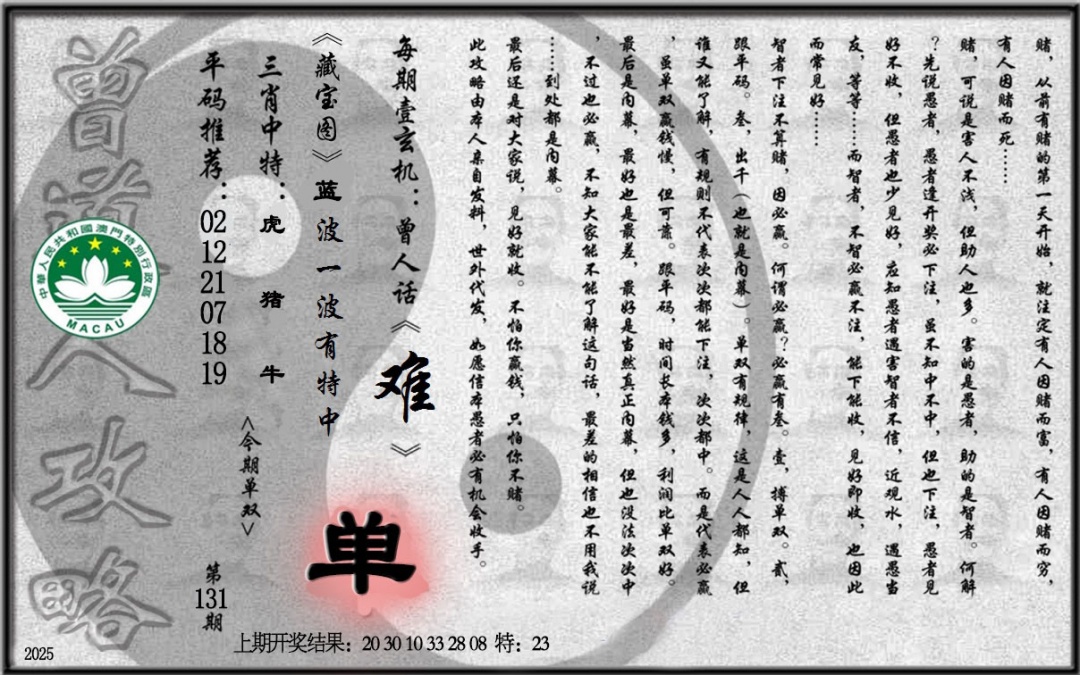 赌，从前有赌的第一天开始，就注定有人因赌而富，有人因赌而穷，
有人因赌而死……
赌，可说是害人不浅，但助人也多。害的是愚者，助的是智者。何解
？先说愚者，愚者逢开奖必下注，虽不知中不中，但也下注，愚者见
好不收，但愚者也少见好，应知愚者遇害智者不信，近观水，遇愚当
友，等等……而智者，不智必赢不注，能下能收，见好即收，也因此
而常见好……
智者下注不算赌，因必赢。何谓必赢？必赢有叁。壹，搏单双。贰，
跟平码。叁，出千（也就是内幕）。单双有规律，这是人人都知，但
谁又能了解，有规则不代表次次都能下注，次次都中。而是代表必赢
，虽单双赢钱慢，但可靠。跟平码，时间长本钱多，利润比单双好。
最后是内幕，最好也是最差，最好是当然真正内幕，但也没法次次中
，不过也必赢，不知大家能不能了解这句话，最差的相信也不用我说
……到处都是内幕。
最后还是对大家说，见好就收。不怕你赢钱，只怕你不赌。
此攻略由本人亲自发料，世外代发，如愿信本愚者必有机会收手。
每期壹玄机：曾人话《难》
《藏宝图》蓝波一波有特中
单
三肖中特：虎 猪 牛
<今期单双>
平码推荐：02 12 21 07 18 19
第131期
曾道人攻略
中華人民共和國澳門特別行政區
MACAU
上期开奖结果：20 30 10 33 28 08 特：23
2025